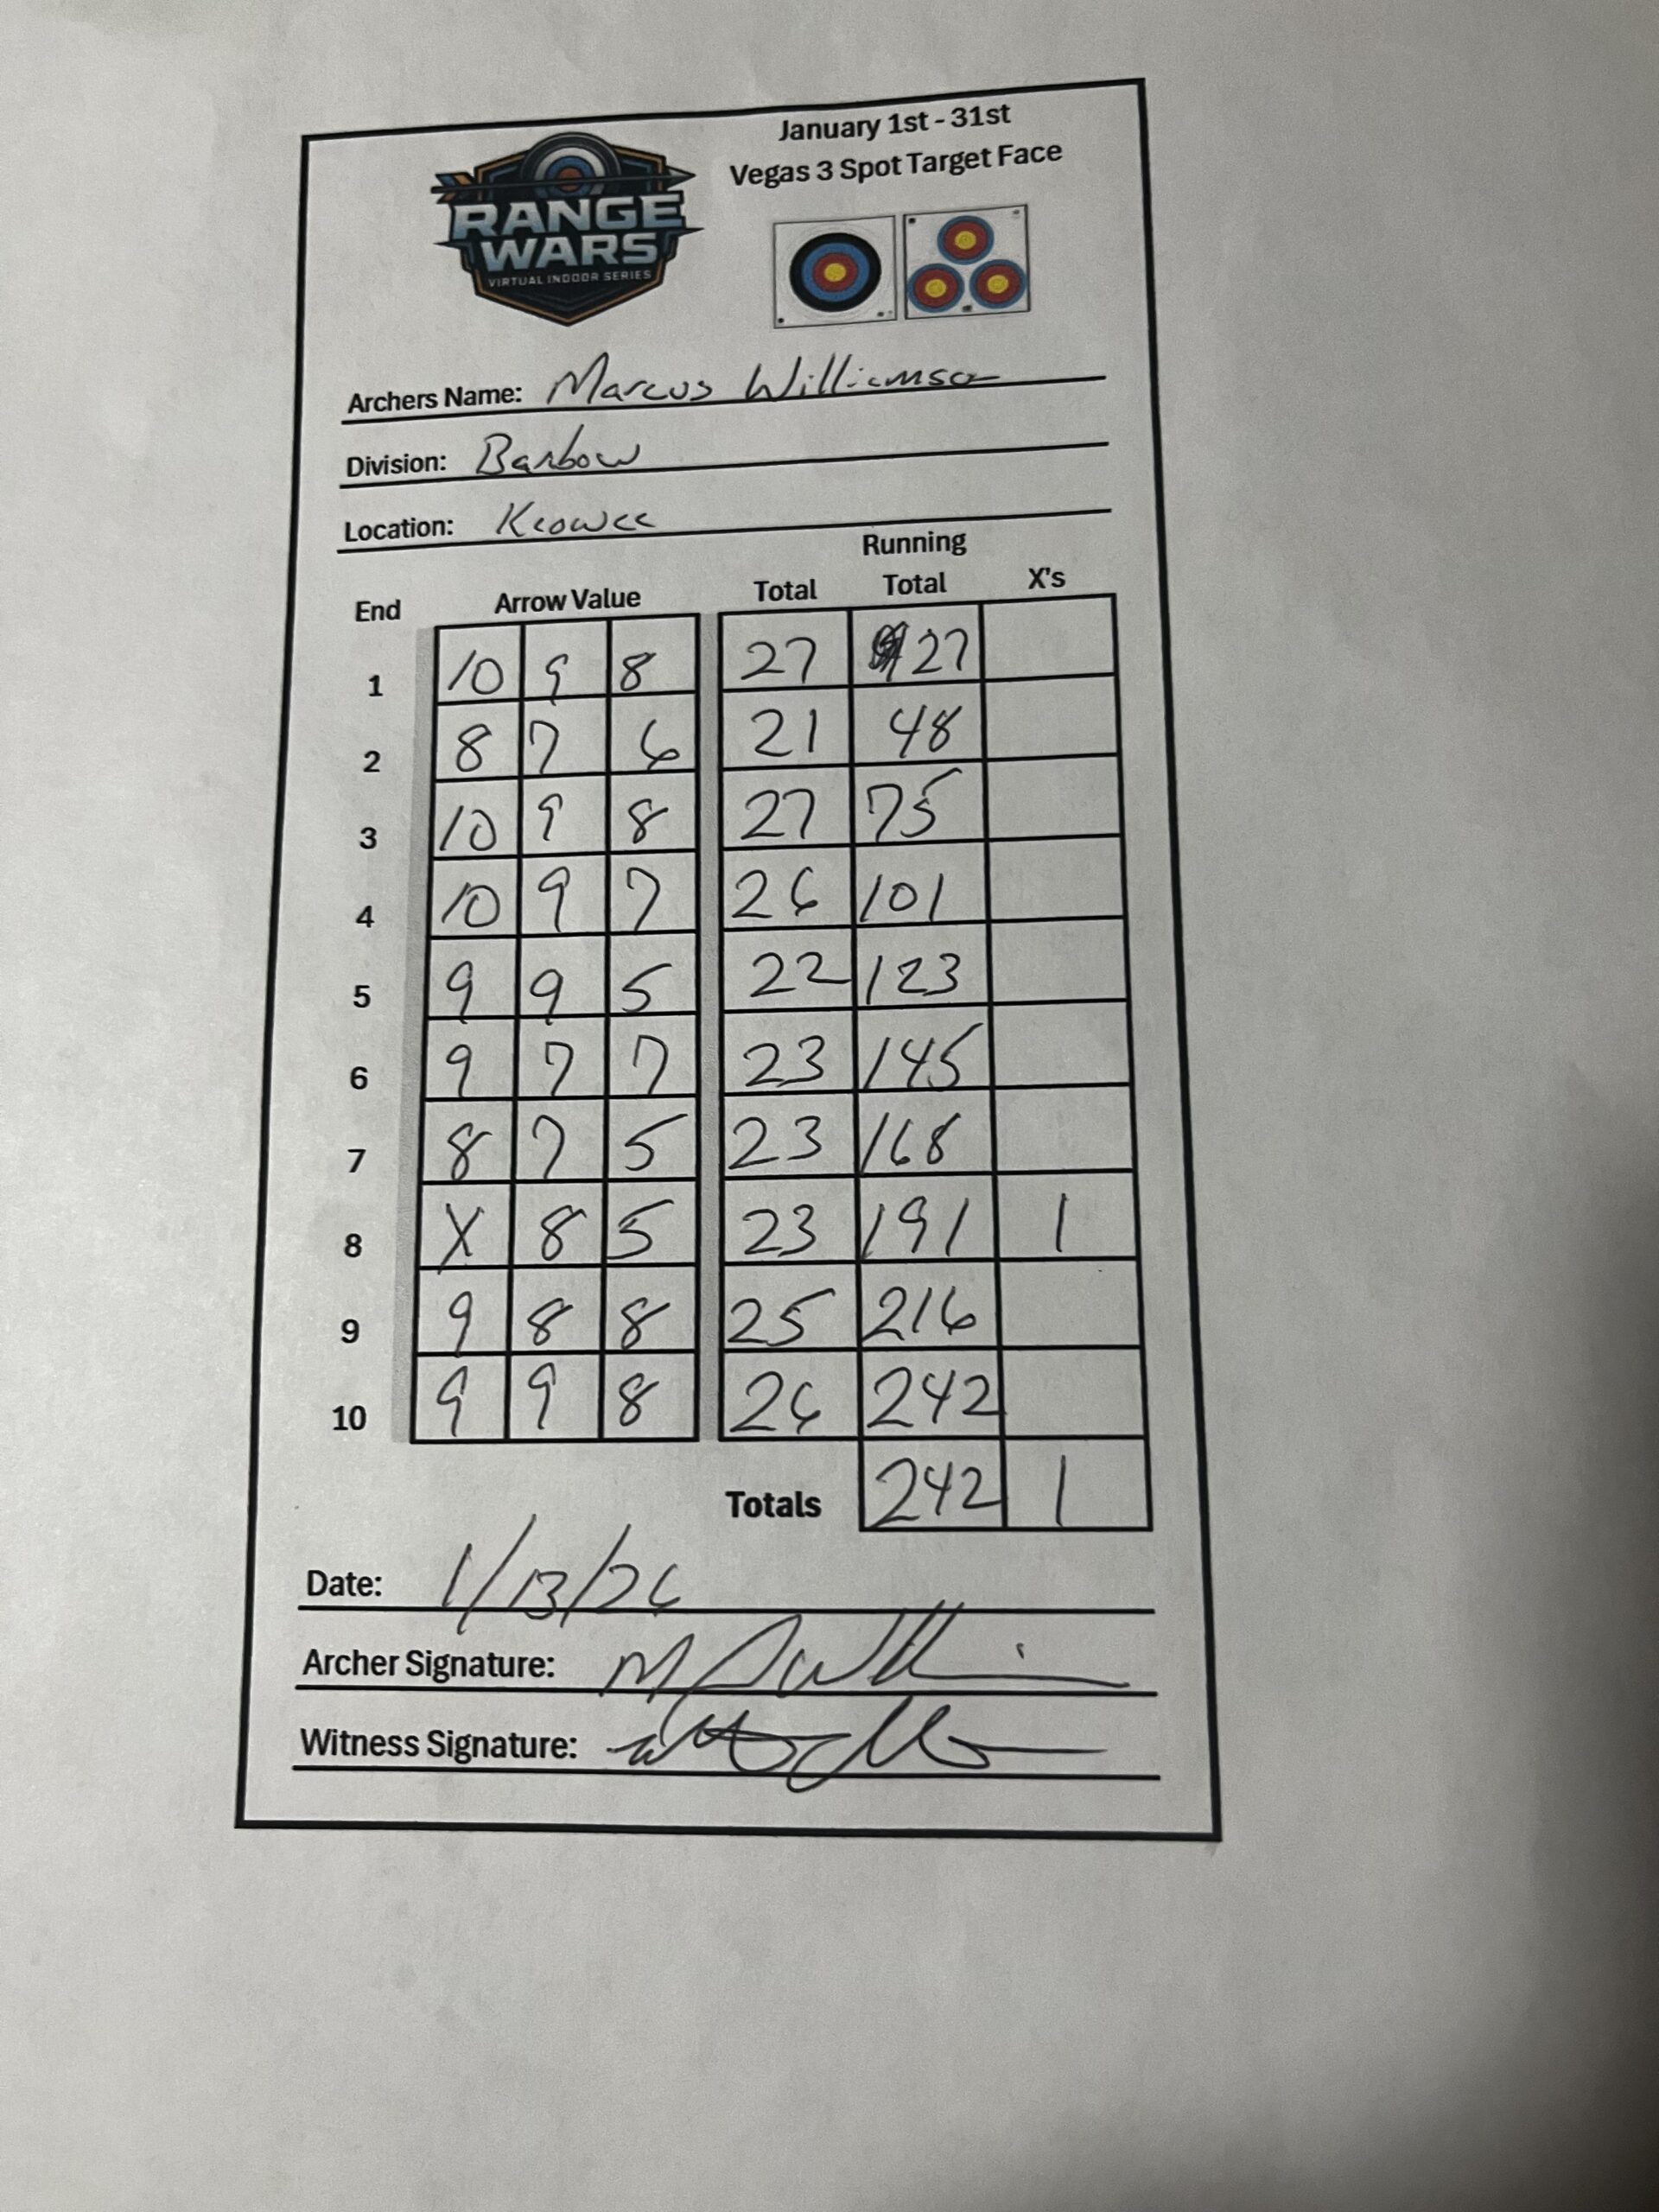 January 1st - 31st
Vegas 3 Spot Target Face
RANGE
WARS
VIRTUAL INDOOR SERIES
Archers Name: Marcus Williamson
Division: Barbow
Location: Keowee
Running
End Arrow Value Total Total X's
1 10 9 8 27 27
2 8 7 6 21 48
3 10 9 8 27 75
4 10 9 7 26 101
5 9 9 5 22 123
6 9 7 7 23 145
7 8 7 5 23 168
8 X 8 5 23 191 1
9 9 8 8 25 216
10 9 9 8 26 242
Totals 242 1
Date: 1/13/26
Archer Signature:
Witness Signature: